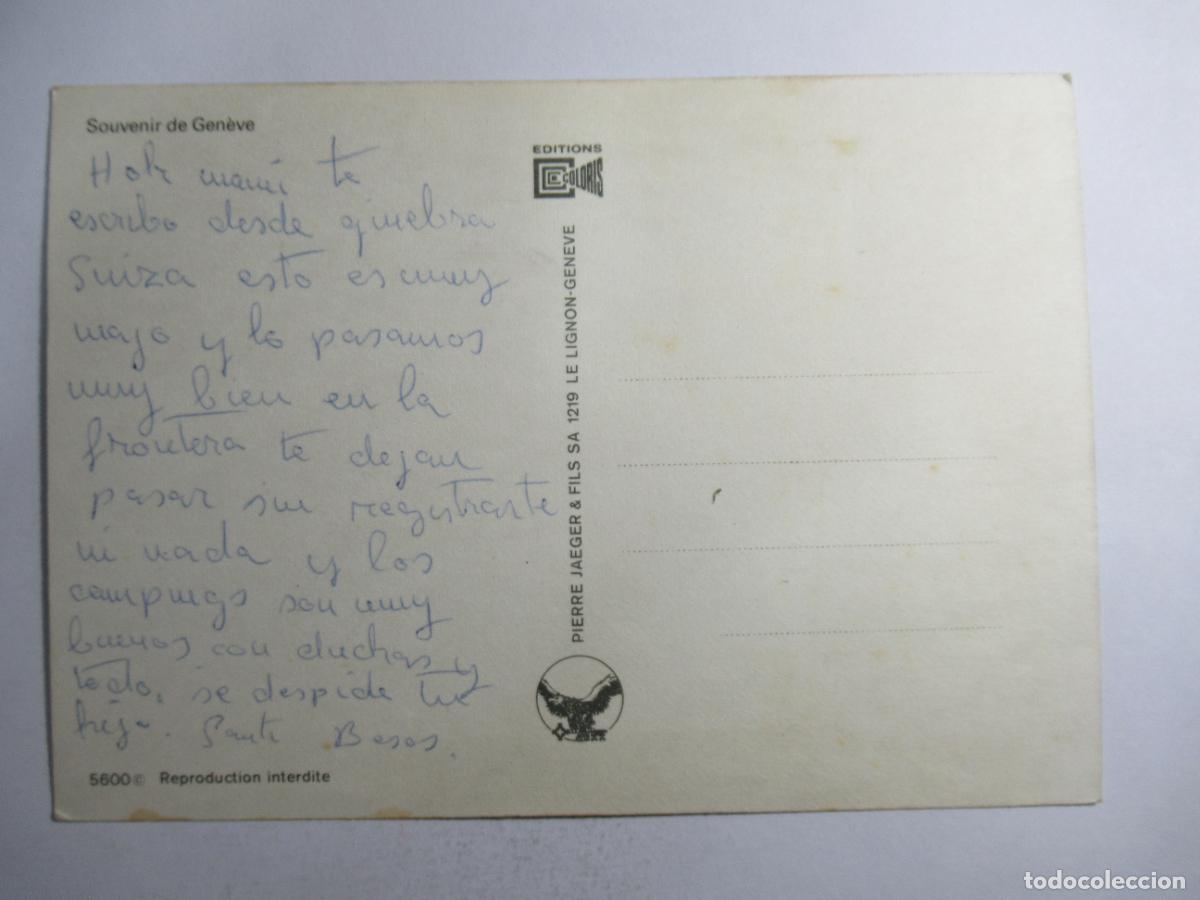 Souvenir de Genève
Hola mami te
escribo desde ginebra
Suiza esto es muy
majo y lo pasamos
muy bien en la
frontera te dejan
pasar sin registrarte
ni nada y los
campings son muy
buenos con duchas y
todo, se despide tu
hija. Besos.
5600 © Reproduction interdite
EDITIONS
COLORIS
PIERRE JAEGER & FILS SA 1219 LE LIGNON-GENEVE
todocoleccion